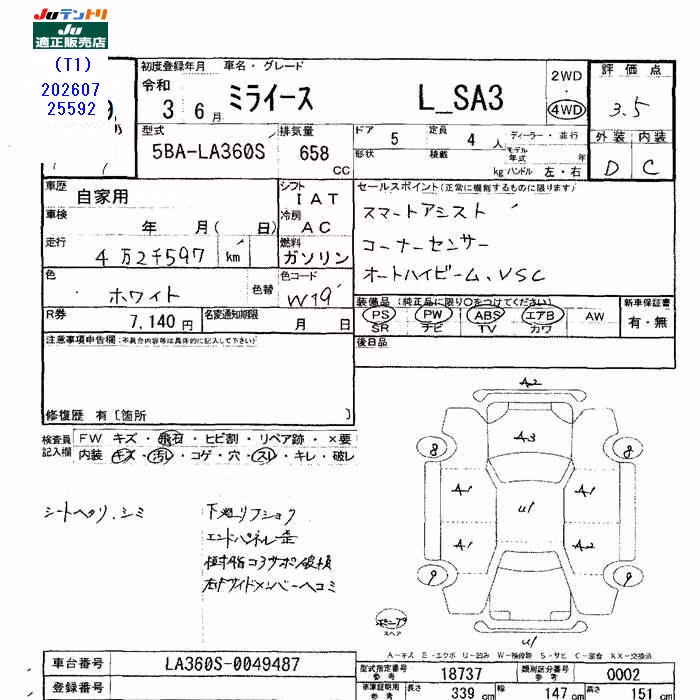 Juテントリ
Ju
適正販売店
(T1)
202607
25592
初度登録年月 車名・グレード
令和
3 6月 ミライース L_SA3
2WD
・
4WD
評価点
3.5
外装 内装
D C
型式 排気量
5BA-LA360S 658 CC
ドア 5 定員 4 人 ディーラー・並行
形状 積載 kg モデル年式 年
ハンドル 左・右
車歴 自家用
シフト IAT
車検 年 月( 日)
冷房 AC
走行 4万2千597 km
燃料 ガソリン
色 ホワイト 色替
色コード W19
R券 7,140円 名変通知期限 月 日
セールスポイント(正常に機能するものに限ります)
スマートアシスト
コーナーセンサー
オートハイビーム、VSC
装備品 (純正品に限り○をつけてください) 新車保証書
PS PW ABS エアB AW 有・無
SR ナビ TV カワ
後日品
注意事項申告欄:(不具合内容等は具体的に記入して下さい)
修復歴 有〔箇所 〕
検査員記入欄
FW キズ・飛石・ヒビ割・リペア跡・×要
内装 キズ・汚レ・コゲ・穴・スレ・キレ・破レ
シートヘリ、シミ
下廻リフショク
エンドパネル歪
右サイドメンバーヘコミ
A2
8 A3 8
A1 A1
U1
A1 A2
9 9
U1
スペア
A-キズ E-エクボ U-凹み W-補修跡 S-サビ C-腐食 XX-交換済
車台番号 LA360S-0049487
登録番号
型式指定番号 参考 18737 類別区分番号 参考 0002
車庫証明用 参考 長さ 339 cm 幅 147 cm 高さ 151 cm